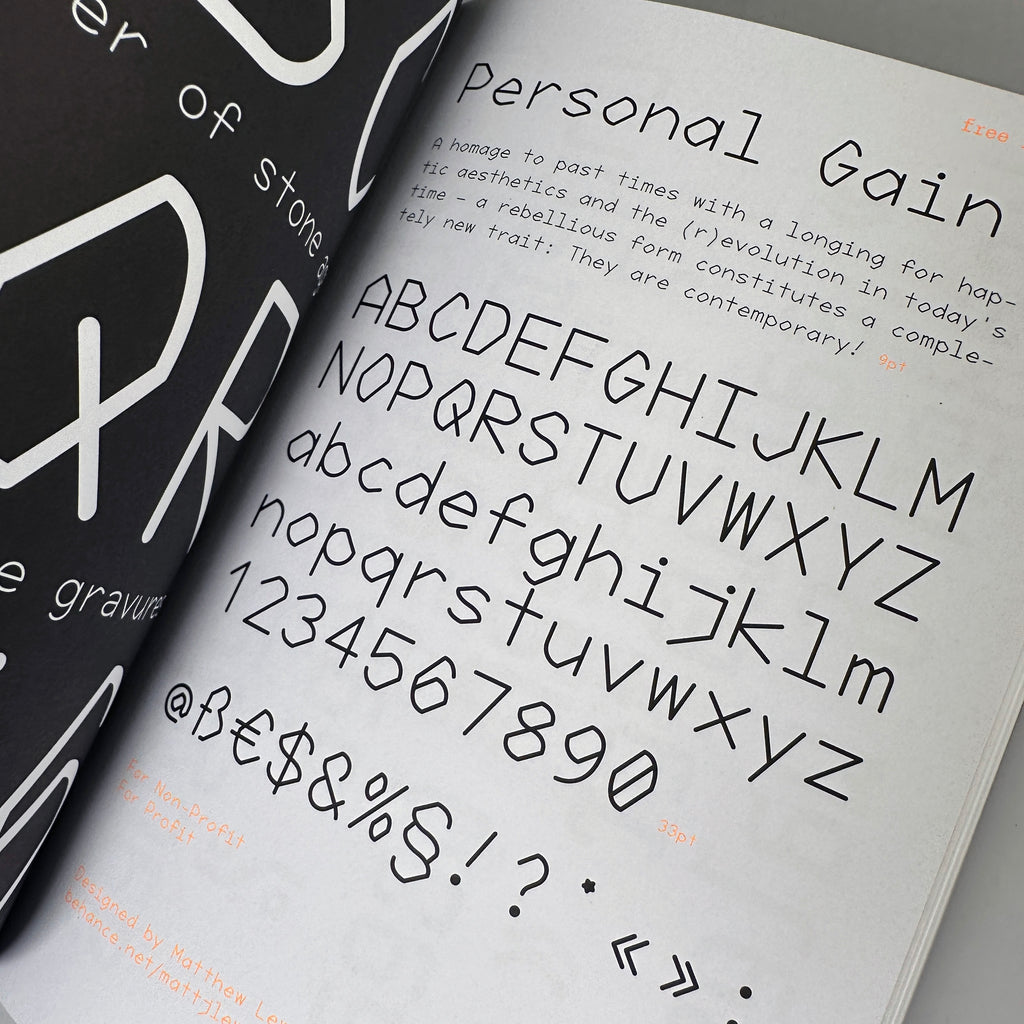 of
stone
gravure
Personal Gain
free
A homage to past times with a longing for hap-
tic aesthetics and the (r)evolution in today's
time – a rebellious form constitutes a comple-
tely new trait: They are contemporary! 9pt
ABCDEFGHIJKLM
NOPQRSTUVWXYZ
abcdefghijklm
nopqrstuvwxyz
1234567890 33pt
@ß€$&%§!?*«»:
For Non-Profit
For Profit
Designed by Matthew
behance.net/mattjle